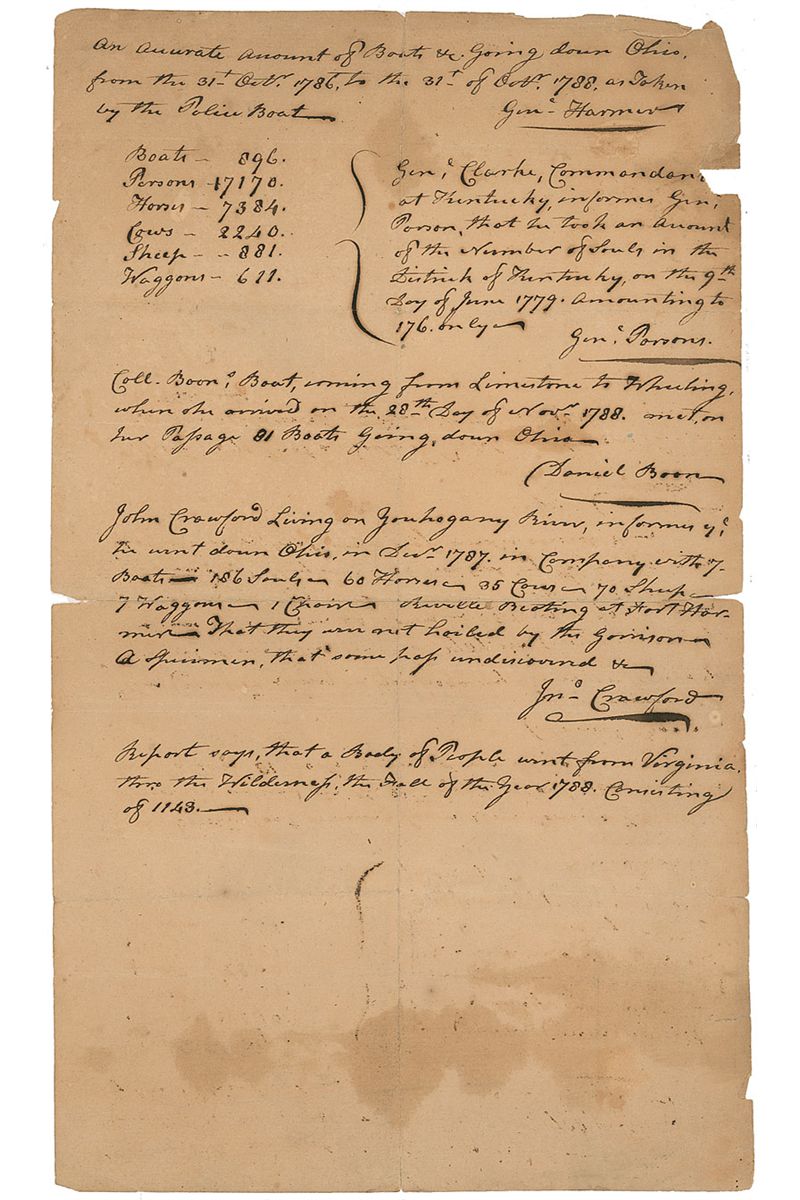 An Accurate Amount of Boats &c. Going down Ohio,
from the 31st Octr. 1786, to the 31st of Octr. 1788. as Taken
by the Police Boat
Genl. Harmer
Boats – 896.
Persons – 17178.
Horses – 7384.
Cows – 2240.
Sheep – – 881.
Waggons – 611.
Genl. Clarke, Commandan
at Kentucky, informes Genl.
Parson, that he took an Amount
of the Number of Souls in the
District of Kentucky, on the 9th
Day of June 1779. Amounting to
176. only
Genl. Parsons.
Coll. Boons Boat, coming from Limestone to Wheeling,
when she arrived on the 28th Day of Novr. 1788. met, on
her Passage 81 Boats Going, down Ohio
Daniel Boon
John Crawford Living on Youhogany River, informes yt
he went down Ohio, in Decr. 1787. in Company with 7
Boats 186 Souls 60 Horses 35 Cows 70 Sheep
7 Waggons 1 Chair Reville Beating at Fort Har-
mer That they wer not hailed by the Garrison
A Specimen, that some pass undiscovered &c
Jno. Crawford
Report says, that a Body of People went from Virginia,
thro the Wilderness, the Fall of the Year 1788. Consisting
of 1143.